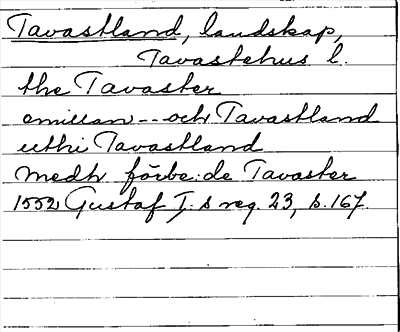 Tavastland, landskap,
Tavastehus l.
the Tavaster
emillan -- och Tavastland
uthi Tavastland
medh förbe:de Tavaster
1552 Gustaf I:s reg. 23, s. 167.